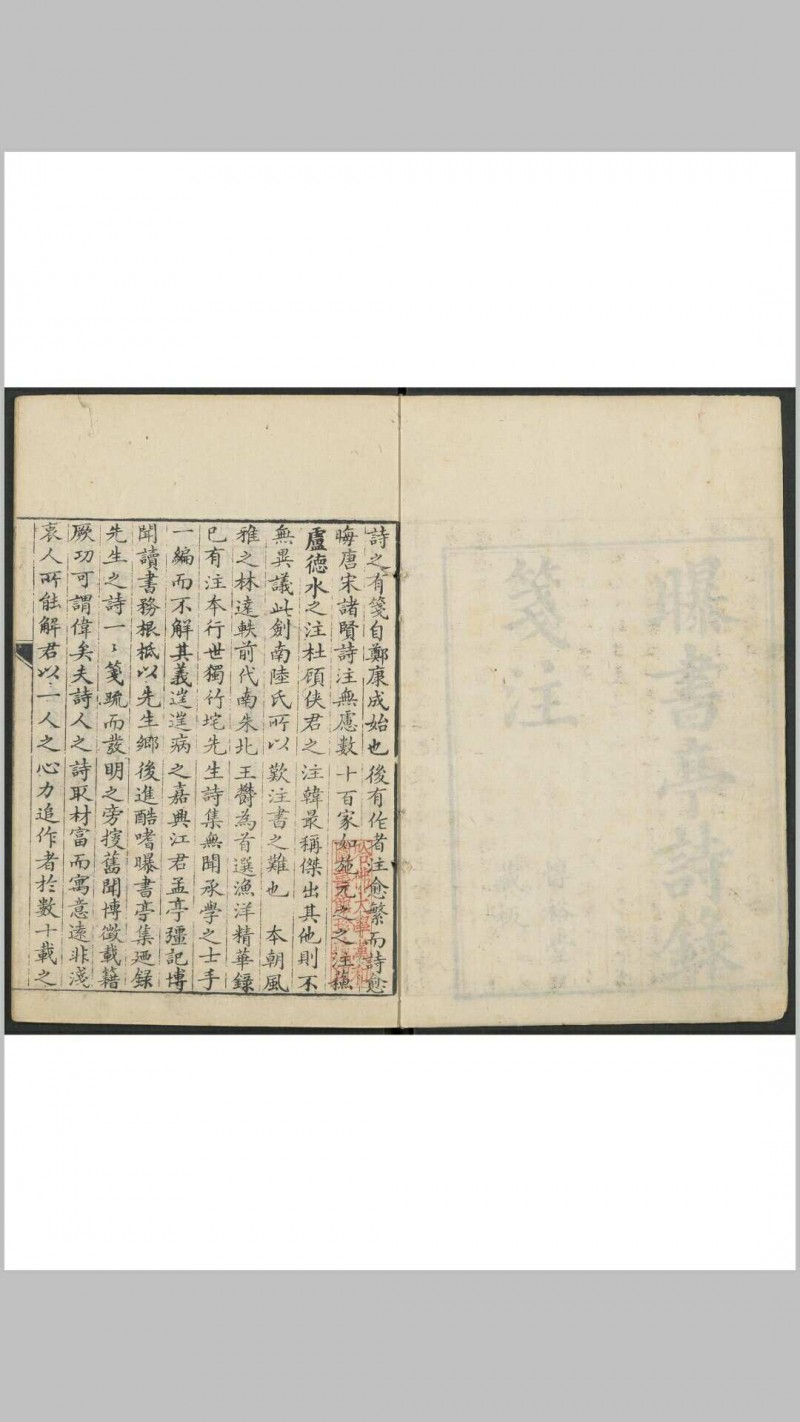 詩之有箋自鄭康成始也後有作者注愈繁而詩愈
晦唐宋諸賢詩注無慮數十百家如施元之之注蘇
盧德水之注杜顧俠君之注韓最稱傑出其他則不
無異議此劍南陸氏所以歎注書之難也　本朝風
雅之林達軼前代南朱北王欝為首選漁洋精華錄
已有注本行世獨竹垞先生詩集無聞承學之士手
一編而不解其義遑遑病之嘉興江君孟亭彊記博
聞讀書務根柢以先生鄉後進酷嗜曝書亭集廼錄
先生之詩一〻箋疏而發明之旁搜舊聞博徵載籍
厥功可謂偉矣夫詩人之詩取材富而寓意遠非淺
衷人所能解君以一人之心力追作者於數十載之